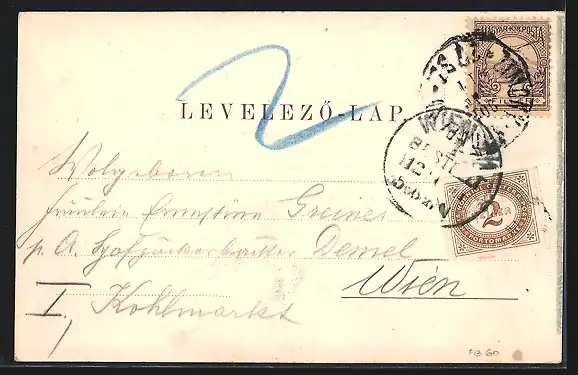 MAGYAR KIR. POSTA
2
LEVELEZŐ-LAP
WIEN
2
HELLER
PORTOMARKE
Wolgeboren
Fräulein Ernestine Greiner
p. A. Hofzuckerbäcker Demel
Wien
I, Kohlmarkt
FB 60